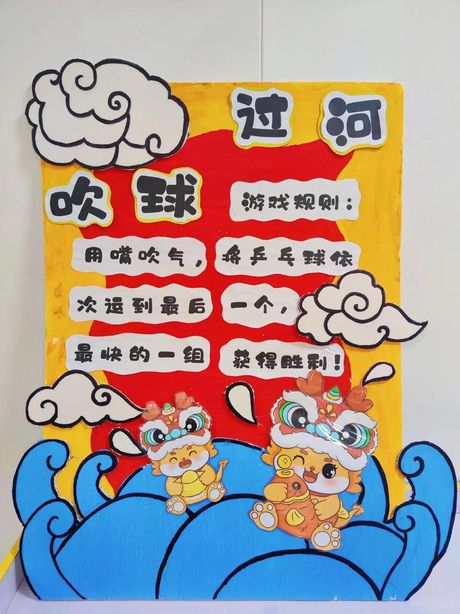 过河
吹球
游戏规则：
用嘴吹气，将乒乓球依
次运到最后一个，
最快的一组获得胜利！